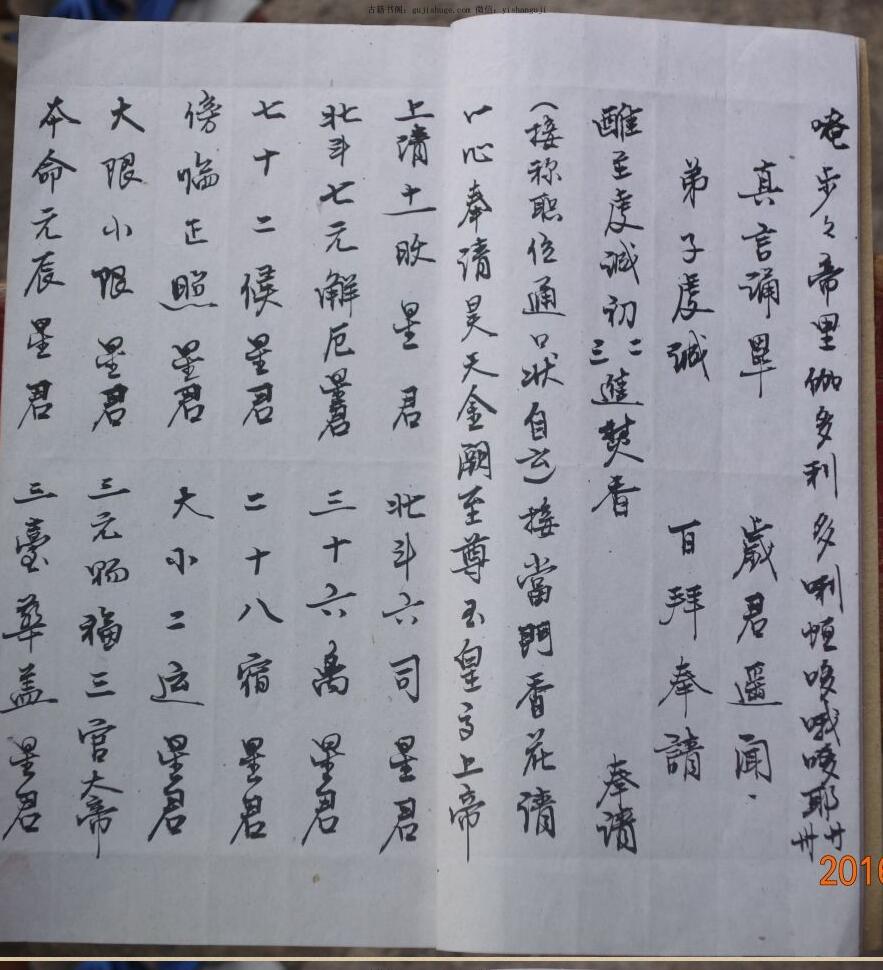 古籍书阁：gujishuge.com 微信：yishanguji
唵步々帝里伽多利多唎怛哆哦哆耶
真言诵畢 歲君遥闻、
弟子虔诚 百拜奉請
醮至虔诚初二三進焚香 奉请
（接称职位通口状自云）接當門香花请
一心奉请昊天金阙至尊玉皇上帝
上清十一 星君 北斗六司星君
北斗七元解厄星君 三十六禺星君
七十二候星君 二十八宿星君
傍临正照星君 大小二运星君
大限小限星君 三元赐福三官大帝
本命元辰星君 三臺華盖星君
2016